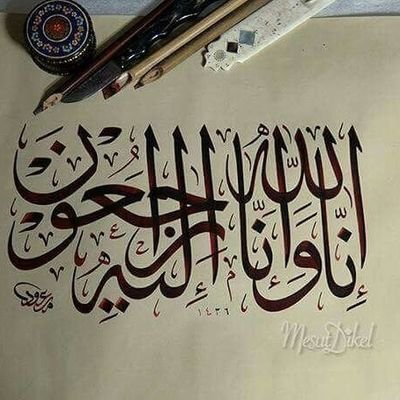 إنا لله وإنا إليه راجعون
١٤٣٦
Mesut Dikel